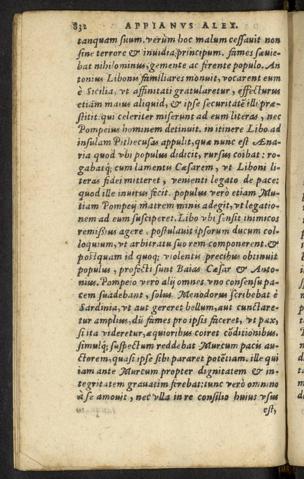 832 APPIANVS ALEX.
tanquam suum. verùm hoc malum cessauit non
sine terrore & inuidia principum. fames sæuie-
bat nihilominus, gemente ac ferente populo. An
tonius Libonis familiares monuit, vocarent eum
è Sicilia, vt affinitati gratularetur, effecturus
etiam maius aliquid, & ipse securitatē illi præ-
stitit. qui celeriter miserunt ad eum literas, nec
Pompeius hominem detinuit. in itinere Libo ad
insulam Pithecusas appulit, quæ nunc est Æna-
ria quod vbi populus didicit, rursus coibat: ro-
gabatq; cum lamentis Cæsarem, vt Liboni li-
teras fidei mitteret, venienti legato de pace:
quod ille inuitus fecit. populus verò etiam Mu-
tiam Pompeij matrem minis adegit, vt legatio-
nem ad eum susciperet. Libo vbi sensit inimicos
remissius agere. postulauit ipsorum ducum col-
loquium, vt arbitratu suo rem componerent. &
postquam id quoq; violentis precibus obtinuit
populus, profecti sunt Baias Cæsar & Anto-
nius. Pompeio verò alij omnes vno consensu pa-
cem suadebant, solus Menodorus scribebat è
Sardinia, vt aut gereret bellum, aut cunctare-
tur amplius, dū fames pro ipsis faceret, vt pax,
si ita videretur, æquioribus coiret cōditionibus.
simulq; suspectum reddebat Murcum pacis au-
ctorem, quasi ipse sibi pararet potētiam. ille qui
iam ante Murcum propter dignitatem & in-
tegritatem grauatim ferebat: tunc verò omnino
à se amouit, nec vlla in re consilio huius vsus
est,